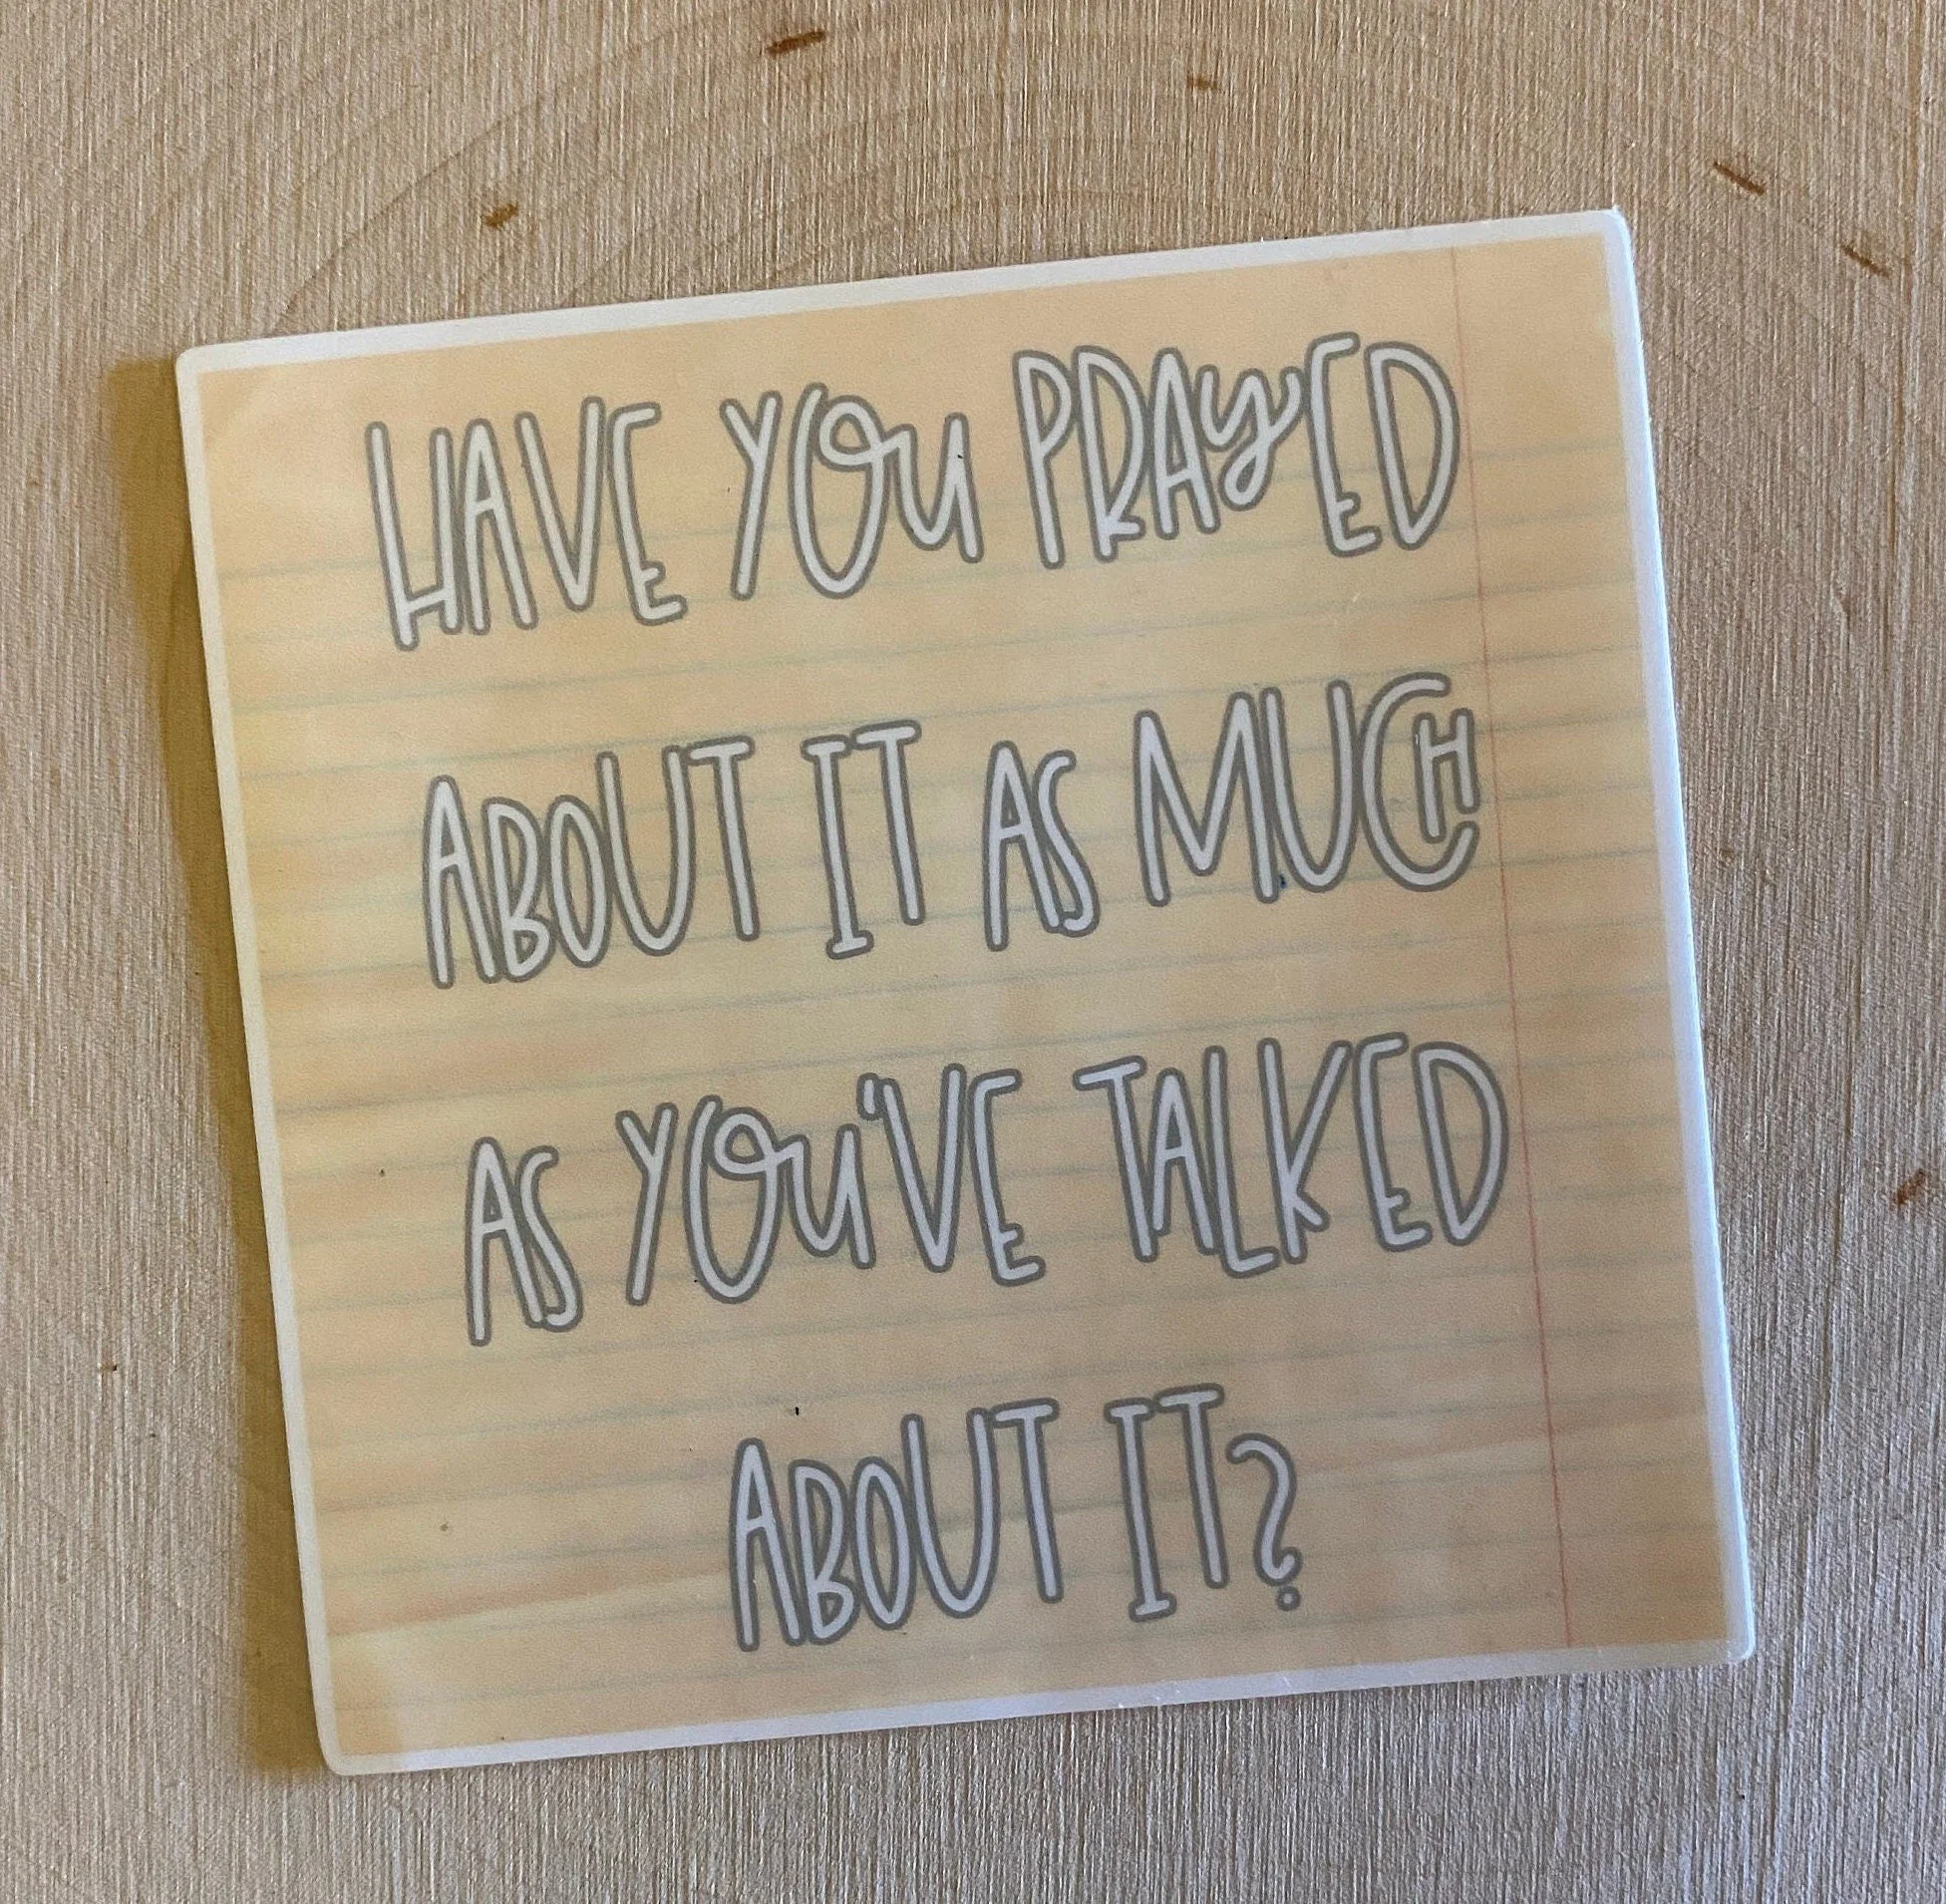 HAVE YOU PRAYED
ABOUT IT AS MUCH
AS YOU'VE TALKED
ABOUT IT?